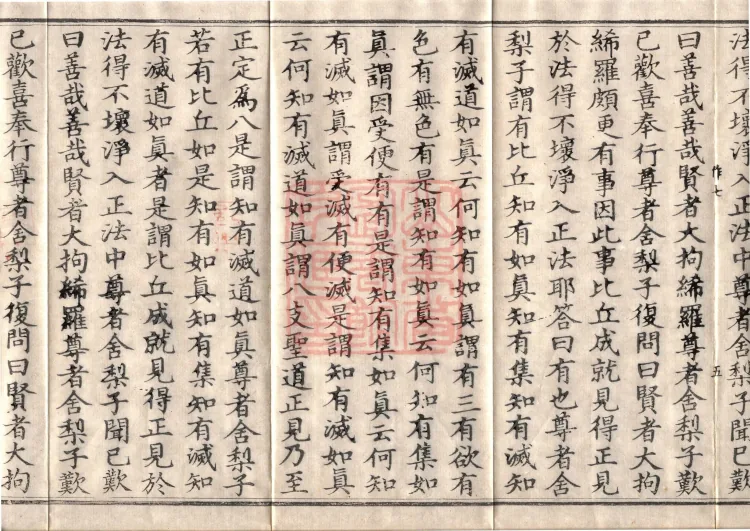 法得不壞淨入正法中尊者舍梨子聞已歎
作七 五
曰善哉善哉賢者大拘絺羅尊者舍梨子歎
已歡喜奉行尊者舍梨子復問曰賢者大拘
絺羅頗更有事因此事比丘成就見得正見
於法得不壞淨入正法耶答曰有也尊者舍
梨子謂有比丘知有如眞知有集知有滅知
有滅道如眞云何知有如眞謂有三有欲有
色有無色有是謂知有如眞云何知有集如
眞謂因受便有有是謂知有集如眞云何知
有滅如眞謂受滅有便滅是謂知有滅如眞
云何知有滅道如眞謂八支聖道正見乃至
正定爲八是謂知有滅道如眞尊者舍梨子
若有比丘如是知有如眞知有集知有滅知
有滅道如眞者是謂比丘成就見得正見於
法得不壞淨入正法中尊者舍梨子聞已歎
曰善哉善哉賢者大拘絺羅尊者舍梨子歎
已歡喜奉行尊者舍梨子復問曰賢者大拘